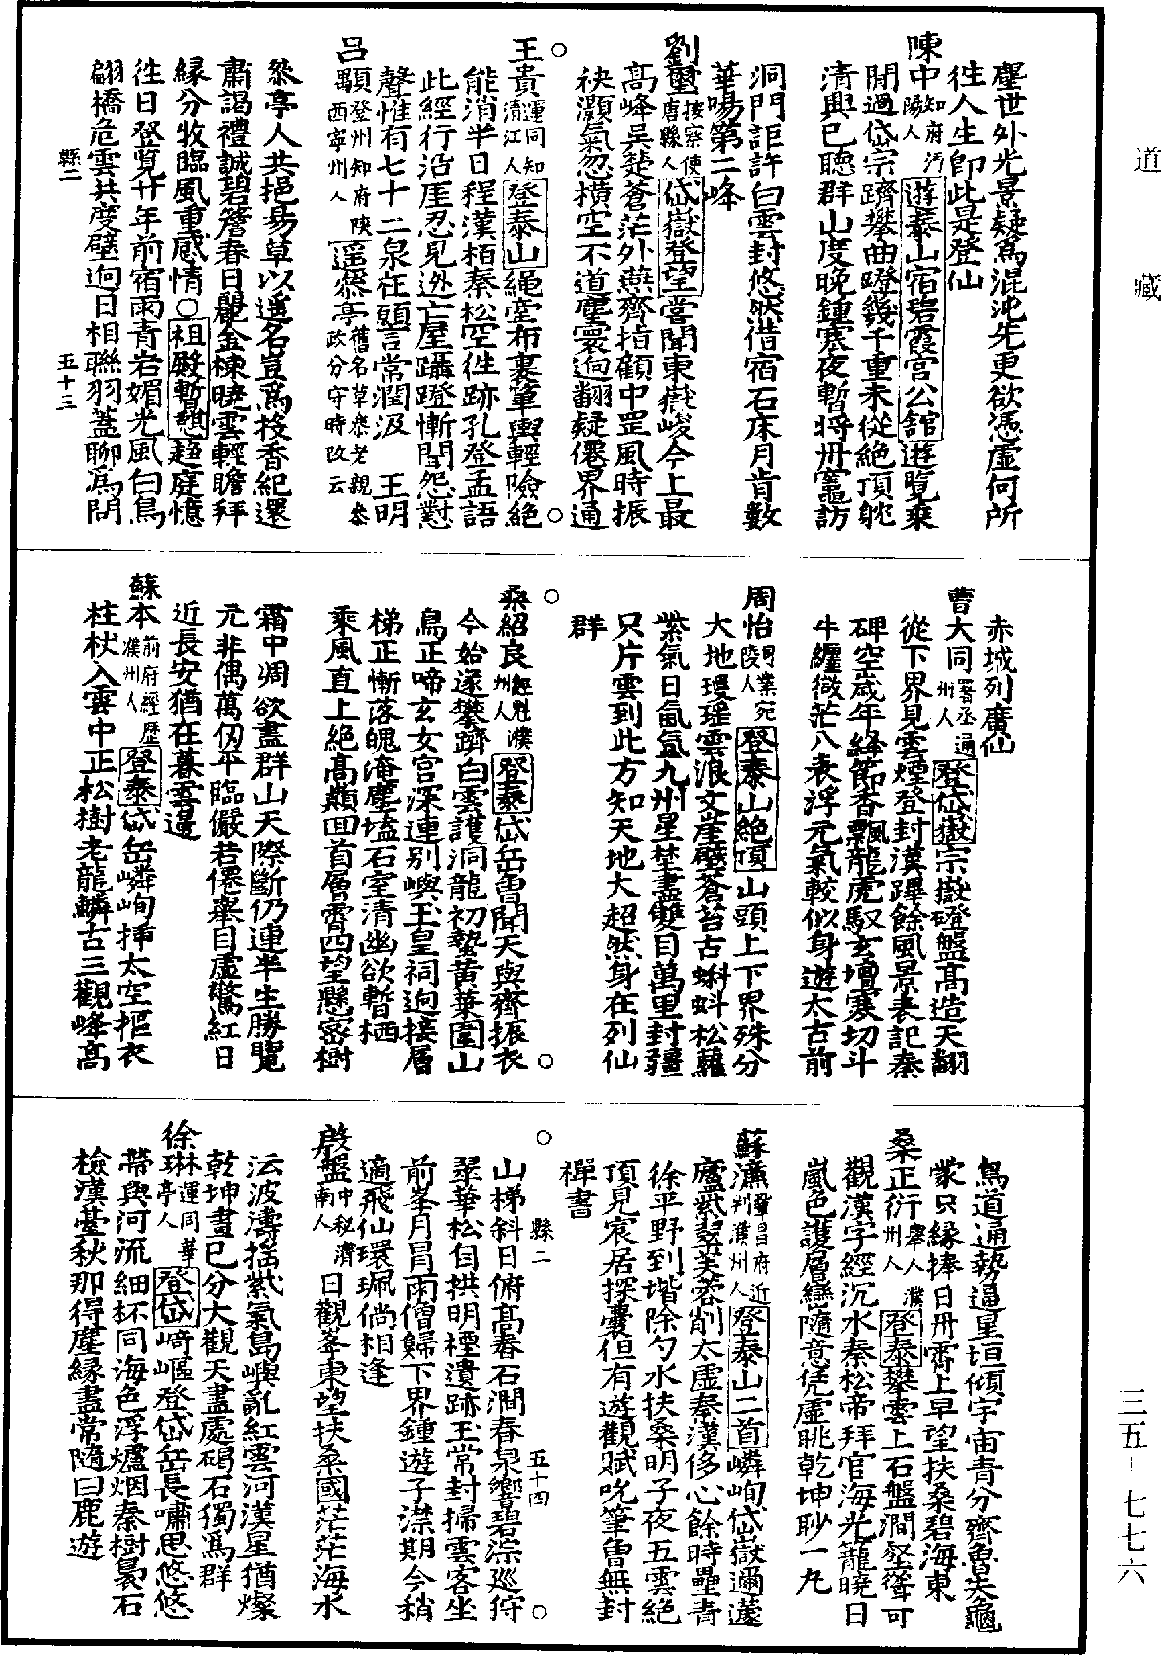 道藏
三五－七七六
塵世外光景疑爲混沌先更欲憑虛何所
徃人生卽此是登仙
陳中知府沔陽人遊泰山宿碧霞宮公舘遊覽乘
閒過岱宗躋攀曲磴幾千重未從絕頂
清興已聽群山度晚鍾寒夜暫將丹竈訪
洞門詎許白雲封悠然借宿石床月肯數
華陽第二峰
劉璽按察使唐縣人岱嶽登望嘗聞東嶽峻今上最
高峰吳楚蒼茫外燕齊指顧中罡風時振
袂灝氣忽橫空不道塵寰逈翻疑僊界通
王貴運同知清江人登泰山繩堂布裹革輿輕險絕
能消半日程漢栢秦松空徃跡孔登孟語
此經行沿厓忍見逃亡屋躡蹬慚聞怨懟
聲惟有七十二泉在願言常潤汲王明
呂顒登州知府陝西寧州人遥叅亭舊名草叅老親叅政分守時改云
叅亭人共挹易草以遥名豈爲投香紀還
肅謁禮誠碧簷春日麗金棟曉雲輕瞻拜
緣分牧臨風重感情〇祖殿暫憩趨庭憶
徃日登覧廿年前宿雨青岩媚光風白鳥
翩橋危雲共度壁逈日相聯羽蓋聊爲問
縣二
五十三
赤城列廣仙
曹大同署丞通州人登岱嶽宗嶽磴盤高造天翻
從下界見雲煙登封漢蹕餘風景表記秦
碑空歲年絳節香飄龍虎馭玄壇寒切斗
牛纏微茫八表浮元氣較似身遊太古前
周怡司業宛陵人登泰山絕頂山頭上下界殊分
大地璦瑤雲浪文崖壁蒼苔古蝌蚪松蘿
紫氣日氤氳九州星埜盡雙目萬里封疆
只片雲到此方知天地大超然身在列仙
群
桑紹良經魁濮州人登泰岱岳曾聞天與齊振衣
今始遂攀躋白雲護洞龍初蟄黃葉圍山
鳥正啼玄女宮深連别嶼玉皇祠逈接層
梯正慚落魄淹塵壒石室清幽欲暫栖
乘風直上絕高巔回首層霄四望懸密樹
霜中凋欲盡群山天際斷仍連半生勝覽
元非偶萬仞平臨儼若僊樂自虛驚紅日
近長安猶在暮雲邊
蘇本前府經歷濮州人登泰岱岳嶙峋揷太空摳衣
柱杖入雲中正松樹老龍鱗古三觀峰高
鳥道通勢逼星垣傾宇宙青分齊魯失龜
蒙只緣捧日丹霄上早望扶桑碧海東
桑正衍舉人濮州人登泰攀雲上石盤澗壑聲可
觀漢字經沉水秦松帝拜官海光籠曉日
嵐色護層巒隨意凭虛眺乾坤眇一丸
蘇濂鞏昌府通判濮州人登泰山二首嶙峋岱嶽邇蘧
廬紫翠芙蓉削太虛秦漢侈心餘時壘青
徐平野到堦除勺水扶桑明子夜五雲絕
頂見宸居探囊但有遊觀賦吮筆曾無封
禪書
山梯斜日俯高舂石澗春泉響碧淙巡狩
翠華松自拱明禋遺跡玉常封掃雲客坐
前峯月冒雨僧歸下界鍾遊子漈期今稍
適飛仙環珮倘相逢
縣二
五十四
殷盤中秘濟南人日觀峯東望扶桑國茫茫海水
沄波濤揺紫氣島嶼亂紅雲河漢星猶燦
乾坤晝已分大觀天盡處碣石獨爲群
徐琳運同華亭人登岱﨑嶇登岱岳長嘯思悠悠
帶與河流細抔同海色浮爐烟秦樹裊石
檢漢臺秋那得塵緣盡常隨白鹿遊